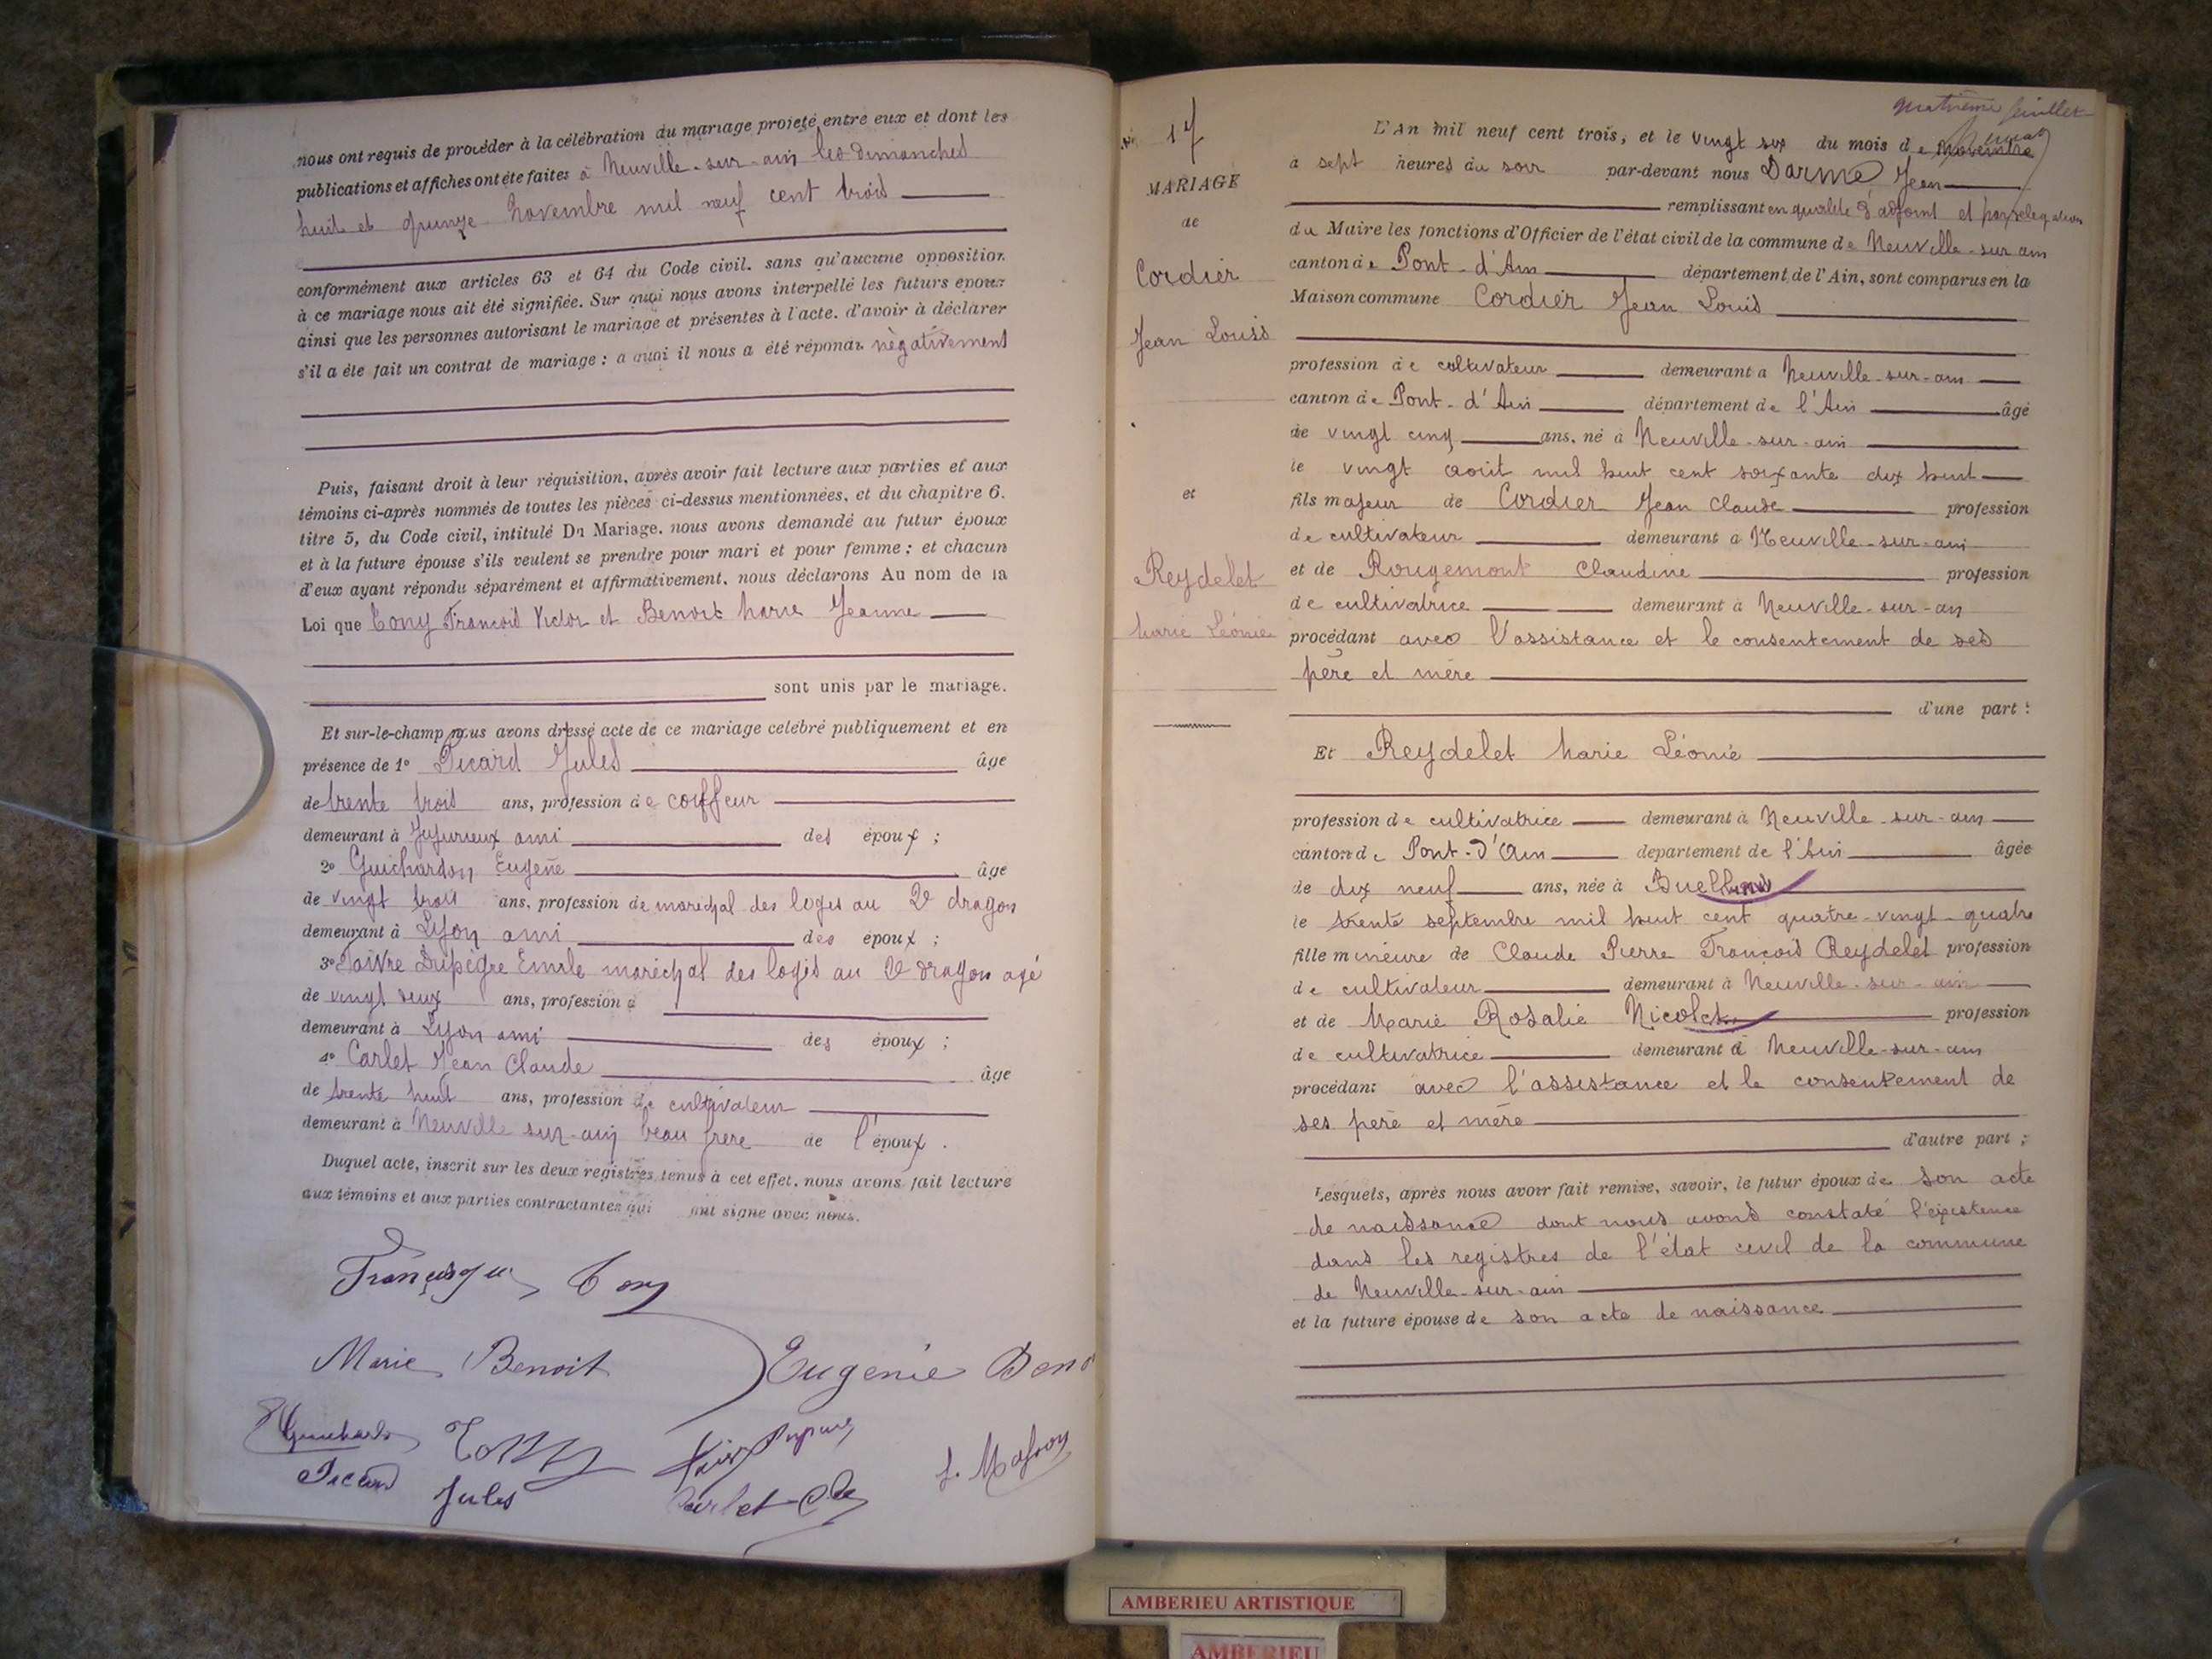 nous ont requis de procéder à la célébration du mariage projeté entre eux et dont les
publications et affiches ont été faites à Neuville-sur-ain les dimanches
huit et quinze Novembre mil neuf cent trois
conformément aux articles 63 et 64 du Code civil, sans qu'aucune opposition
à ce mariage nous ait été signifiée. Sur quoi nous avons interpellé les futurs époux
ainsi que les personnes autorisant le mariage et présentes à l'acte, d'avoir à déclarer
s'il a été fait un contrat de mariage : à quoi il nous a été répondu négativement
Puis, faisant droit à leur réquisition, après avoir fait lecture aux parties et aux
témoins ci-après nommés de toutes les pièces ci-dessus mentionnées, et du chapitre 6,
titre 5, du Code civil, intitulé Du Mariage, nous avons demandé au futur époux
et à la future épouse s'ils veulent se prendre pour mari et pour femme ; et chacun
d'eux ayant répondu séparément et affirmativement, nous déclarons Au nom de la
Loi que Tony François Victor et Benoit Marie Jeanne
sont unis par le mariage.
Et sur-le-champ nous avons dressé acte de ce mariage celébré publiquement et en
présence de 1° Picard Jules âgé
de trente trois ans, profession de coiffeur
demeurant à Jujurieux ami des époux ;
2° Guichardon Eugène âgé
de vingt trois ans, profession de maréchal des logis au 2e dragon
demeurant à Lyon ami des époux ;
3° Faivre Dupégre Emile maréchal des logis au 2e dragon agé
de vingt deux ans, profession d
demeurant à Lyon ami des époux ;
4° Carlet Jean Claude âgé
de trente huit ans, profession de cultivateur
demeurant à Neuville sur-ain beau frère de l'époux.
Duquel acte, inscrit sur les deux registres tenus à cet effet, nous avons fait lecture
aux témoins et aux parties contractantes qui ont signé avec nous.
Tony
Marie Benoit Eugenie
Tony
Picard Jules Carlet
17
MARIAGE
de
Cordier
Jean Louis
et
Reydelet
Marie Léonie
Juillet
L'An mil neuf cent trois, et le vingt six du mois de Novembre
à sept heures du soir par-devant nous Darme Jean
remplissant en qualité d'adjoint et par délégation
du Maire les fonctions d'Officier de l'état civil de la commune de Neuville-sur-ain
canton de Pont-d'Ain département de l'Ain, sont comparus en la
Maison commune Cordier Jean Louis
profession de cultivateur demeurant à Neuville-sur-ain
canton de Pont-d'Ain département de l'Ain âgé
de vingt cinq ans, né à Neuville-sur-ain
le vingt août mil huit cent soixante dix huit
fils majeur de Cordier Jean Claude profession
de cultivateur demeurant à Neuville-sur-ain
et de Rougemont Claudine profession
de cultivatrice demeurant à Neuville-sur-ain
procédant avec l'assistance et le consentement de ses
père et mère
d'une part :
Et Reydelet Marie Léonie
profession de cultivatrice demeurant à Neuville-sur-ain
canton de Pont-d'Ain département de l'Ain âgée
de dix neuf ans, née à
le trente septembre mil huit cent quatre-vingt-quatre
fille mineure de Claude Pierre François Reydelet profession
de cultivateur demeurant à Neuville-sur-ain
et de Marie Rosalie Nicolet profession
de cultivatrice demeurant à Neuville-sur-ain
procédant avec l'assistance et le consentement de
ses père et mère
d'autre part ;
Lesquels, après nous avoir fait remise, savoir, le futur époux de son acte
de naissance dont nous avons constaté l'existence
dans les registres de l'état civil de la commune
de Neuville-sur-ain
et la future épouse de son acte de naissance
AMBERIEU ARTISTIQUE
AMBERIEU